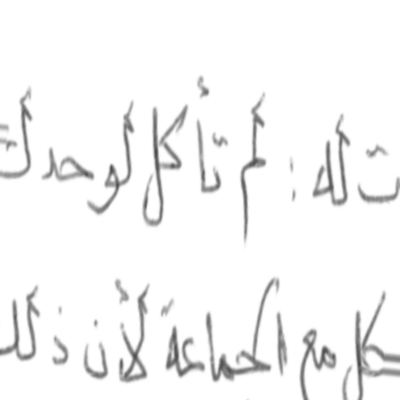 ت له : لم تأكل لوحدك
كل مع الجماعة لأن ذلك